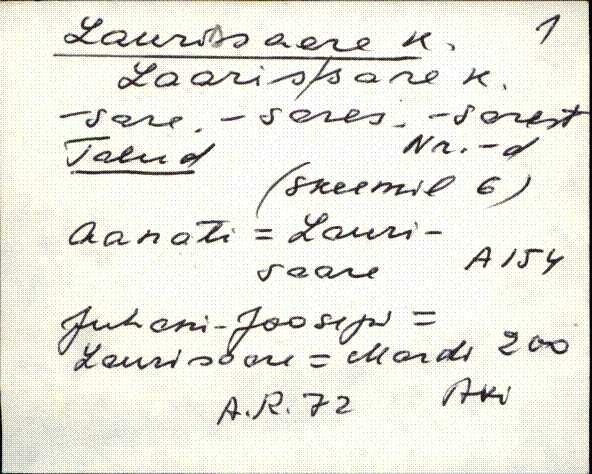 Laurissaare k. 1
Laaris/sare k.
-sare, -sares, -sarest
Talud Nr.-d
(skeemil 6)
Aanati = Lauri-
saare A 154
Juhani-Joosepi =
Laurisaare = Mardi 200
A.R. 72 Aki